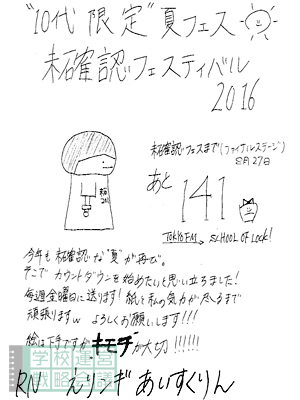 "10代限定"夏フェス
未確認フェスティバル
2016
未確認フェスまで(ファイナルステージ)
8月27日
あと
141
TOKYO FM SCHOOL OF LOCK!
今年も未確認な"夏"が再び。
そこでカウントダウンを始めたいと思い立ちました!
毎週金曜日に送ります!紙と私の気力が尽くるまで
頑張りますw よろしくお願いします!!!
絵は下手ですがキモチが大切!!!!!!
学校運営
戦略会議
RN えりーぎあいすくりん